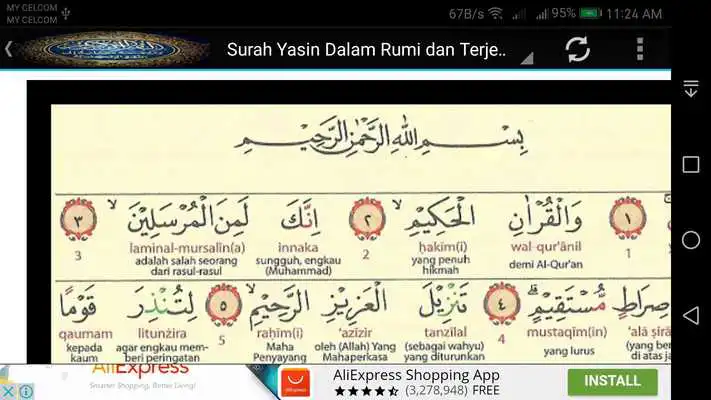 MY CELCOM
MY CELCOM
67B/s 95% 11:24 AM
Surah Yasin Dalam Rumi dan Terje..
بِسْمِ اللهِ الرَّحْمٰنِ الرَّحِيْمِ
١ وَالْقُرْاٰنِ الْحَكِيْمِۙ ٢ اِنَّكَ لَمِنَ الْمُرْسَلِيْنَۙ ٣
1 wal-qur'ānil ḥakīm(i) 2 innaka laminal-mursalīn(a) 3
demi Al-Qur'an yang penuh hikmah sungguh, engkau (Muhammad) adalah salah seorang dari rasul-rasul
صِرَاطٍ مُّسْتَقِيْمٍۗ ٤ تَنْزِيْلَ الْعَزِيْزِ الرَّحِيْمِۙ ٥ لِتُنْذِرَ قَوْمًا
'alā ṣirā mustaqīm(in) 4 tanzīlal 'azīzir raḥīm(i) 5 litunżira qaumam
(yang ber di atas ja yang lurus (sebagai wahyu) yang diturunkan oleh (Allah) Yang Mahaperkasa Maha Penyayang agar engkau mem-beri peringatan kepada kaum
AliExpress
Smarter Shopping, Better Living!
AliExpress
AliExpress Shopping App
(3,278,948) FREE
INSTALL